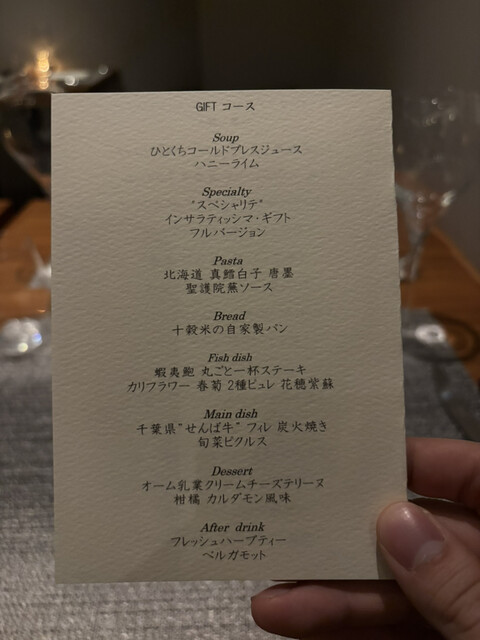 GIFT コース
Soup
ひとくちコールドプレスジュース
ハニーライム
Specialty
"スペシャリテ"
インサラティッシマ・ギフト
フルバージョン
Pasta
北海道 真鱈白子 唐墨
聖護院蕪ソース
Bread
十穀米の自家製パン
Fish dish
蝦夷鮑 丸ごと一杯ステーキ
カリフラワー 春菊 2種ピュレ 花穂紫蘇
Main dish
千葉県"せんば牛" フィレ 炭火焼き
旬菜ピクルス
Dessert
オーム乳業クリームチーズテリーヌ
柑橘 カルダモン風味
After drink
フレッシュハーブティー
ベルガモット